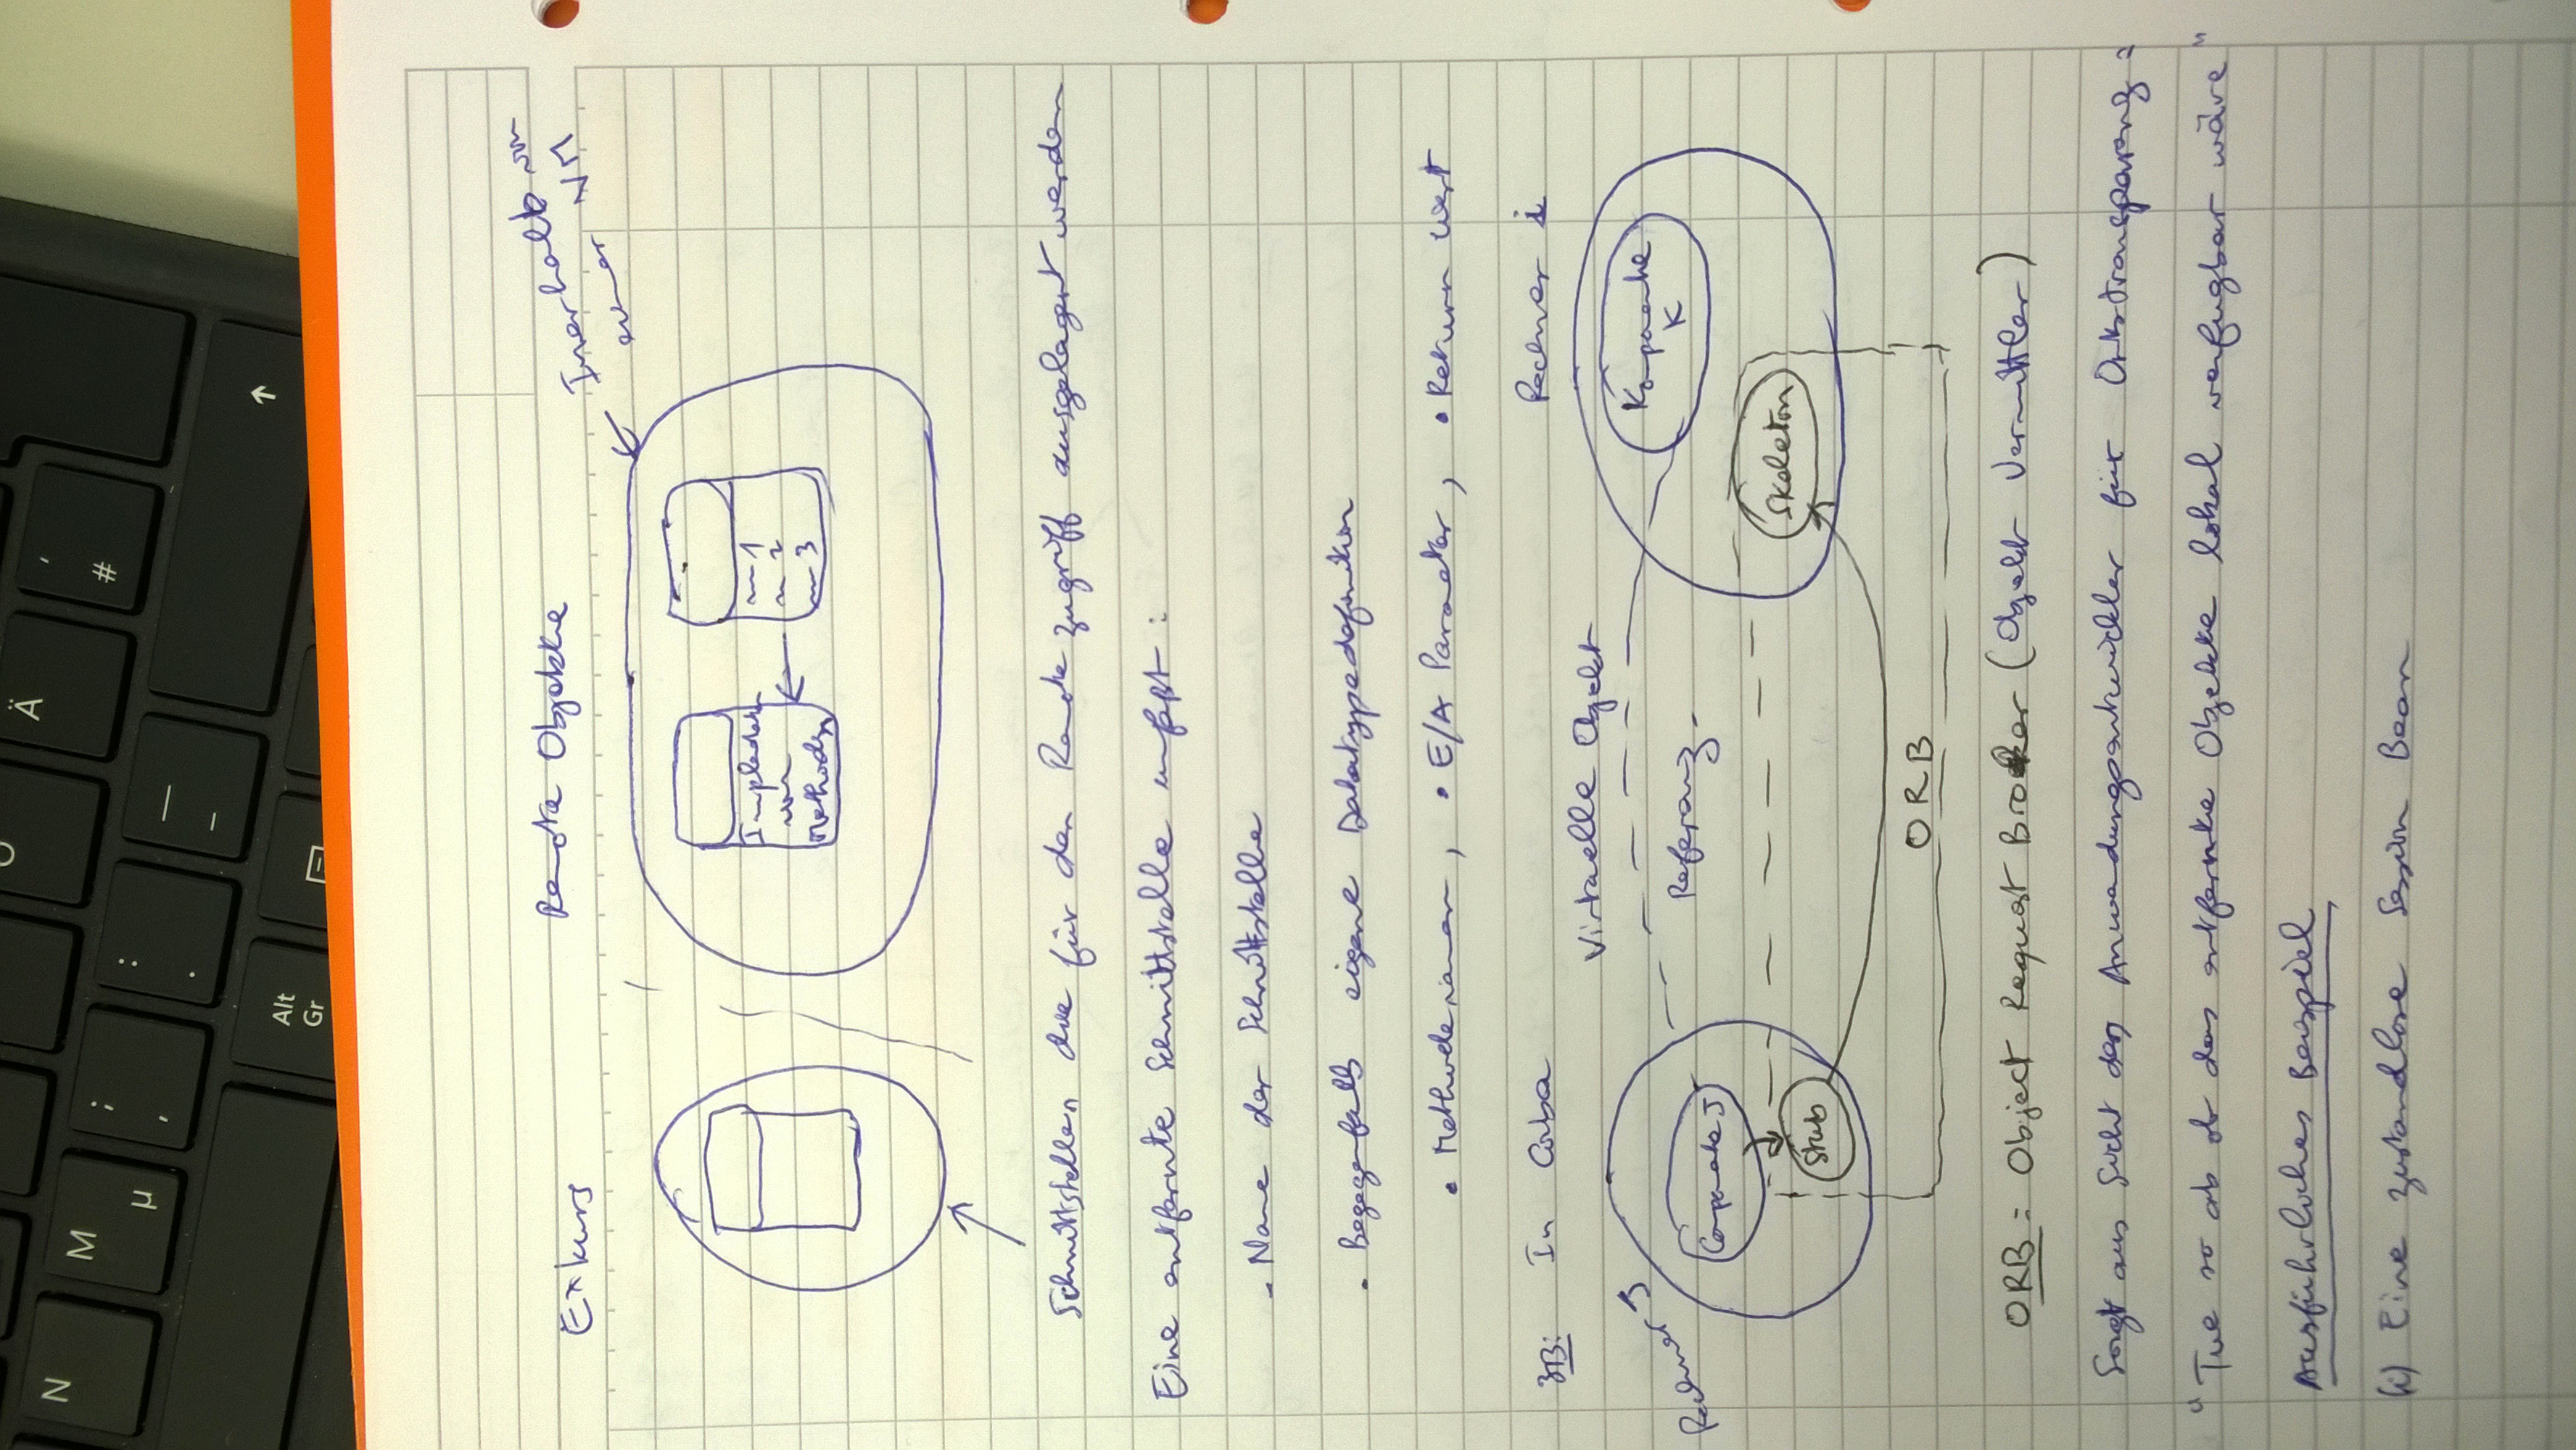 Exkurs Remote Objekte
Innerhalb von
einer VM
Implementation
von
Methoden
m1
m2
m3
Schnittstellen die für den Remote zugriff ausgelagert werden
Eine entfernte Schnittstelle umfaßt:
- Name der Schnittstelle
• Gegegenfalls eigene Datatypedefinition
• Methodenamen, • E/A Parameter, • Return wert
zB: In Corba Rechner i
Rechner j
Virtuelle Objekt
Referenz
Komponente
K
Componente J
Stub
Skeleton
ORB
ORB: Object Request Broker (Objekt Vermittler)
Sorgt aus Sicht des Anwendungsentwickler für Ortstransparenz =
"Tue so ob ob das entfernte Objekte lokal verfügbar wäre"
Ausführliches Beispiel
(i) Eine zustandlose Session Bean
N
M
µ
;
,
:
.
–
_
Ä
'
#
Alt
Gr
↑